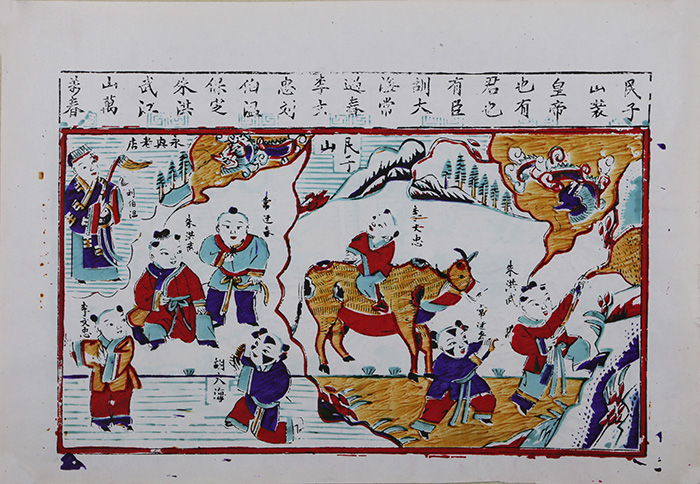 民子
山裝
皇帝
也有
君也
有臣
胡大
海常
遇春
李文
忠刘
伯温
保定
朱洪
武江
山萬
春
民子山
李文忠
朱洪武
常遇春
永興老店
刘伯温
常遇春
朱洪武
李文忠
胡大海